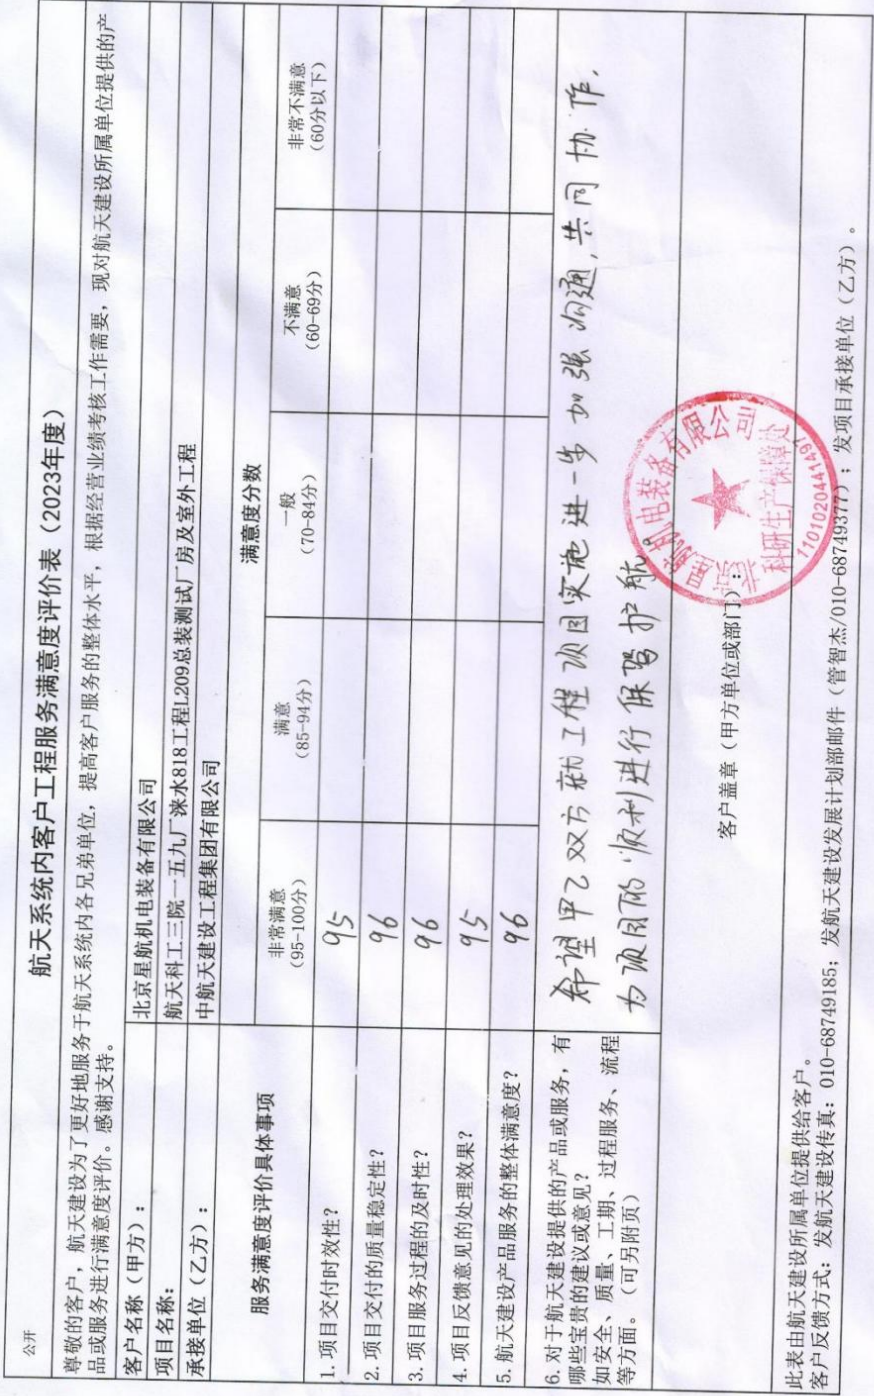 公开
航天系统内客户工程服务满意度评价表（2023年度）
尊敬的客户，航天建设为了更好地服务于航天系统内各兄弟单位，提高客户服务的整体水平，根据经营业绩考核工作需要，现对航天建设所属单位提供的产
品或服务进行满意度评价。感谢支持。
客户名称（甲方）： 北京星航机电装备有限公司
项目名称： 航天科工三院一五九厂涞水818工程L209总装测试厂房及室外工程
承接单位（乙方）： 中航天建设工程集团有限公司
服务满意度评价具体事项 满意度分数
非常满意 满意 一般 不满意 非常不满意
（95-100分） （85-94分） （70-84分） （60-69分） （60分以下）
1. 项目交付时效性？ 95
2. 项目交付的质量稳定性？ 96
3. 项目服务过程的及时性？ 96
4. 项目反馈意见的处理效果？ 95
5. 航天建设产品服务的整体满意度？ 96
6. 对于航天建设提供的产品或服务，有
哪些宝贵的建议或意见？
如安全、质量、工期、过程服务、流程
等方面。（可另附页）
希望甲乙双方就工程项目实施进一步加强沟通，共同协作，
为项目的顺利进行保驾护航。
客户盖章（甲方单位或部门）：
北京星航机电装备有限公司
科研生产保障处
1101020441497
此表由航天建设所属单位提供给客户。
客户反馈方式：发航天建设传真：010-68749185；发航天建设发展计划部邮件（管智杰/010-68749377）；发项目承接单位（乙方）。